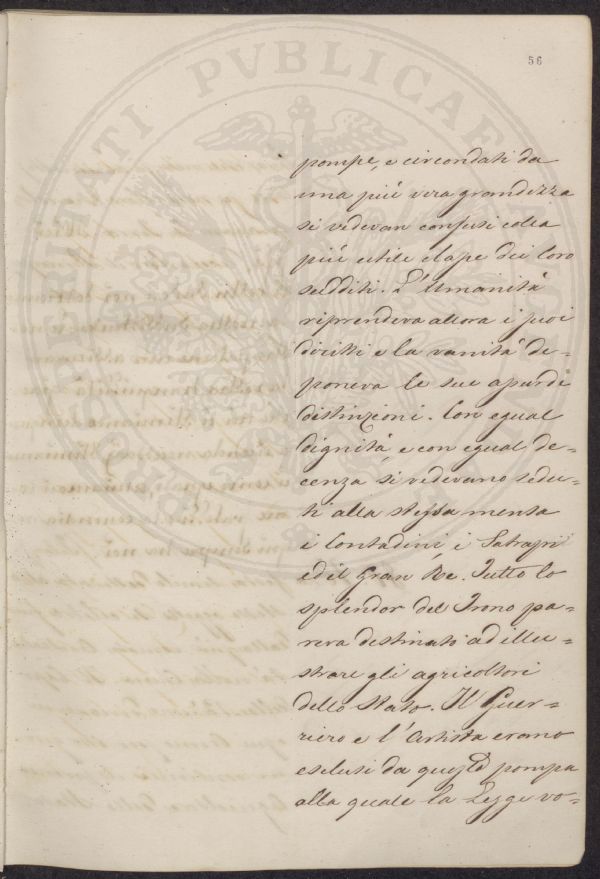 56
pompe, e circondati da
una più vera grandezza
si vedevan confusi colla
più utile classe dei loro
sudditi. L'Umanità
riprendeva allora i suoi
diritti e la vanità de-
poneva le sue assurde
distinzioni. Con egual
dignità, e con egual de-
cenza si vedevano sedu-
ti alla stessa mensa
i Contadini i Satrapi
ed il Gran Re. Tutto lo
splendor del Trono pa-
reva destinato ad illu-
strare gli agricoltori
dello Stato. Il Guer-
riero e l'Artista erano
esclusi da questa pompa
alla quale la Legge vo-
PROSPERITATI PVBLICAE